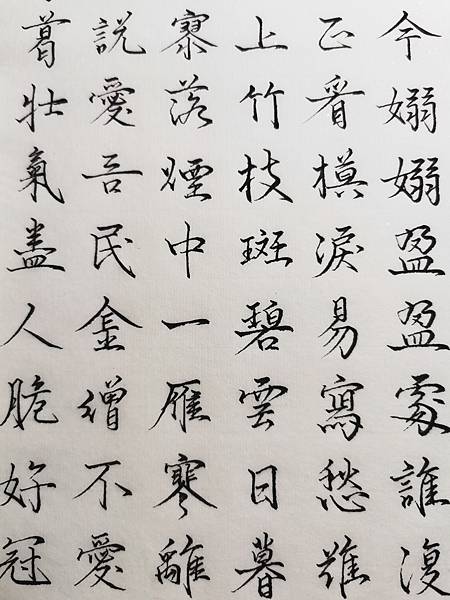 今嫋嫋盈盈處誰復
正看模淚易寫愁難
上竹枝斑碧雲日暮
寥落煙中一雁寒離
說愛吾民金繒不愛
葛壯氣盡人脆好冠